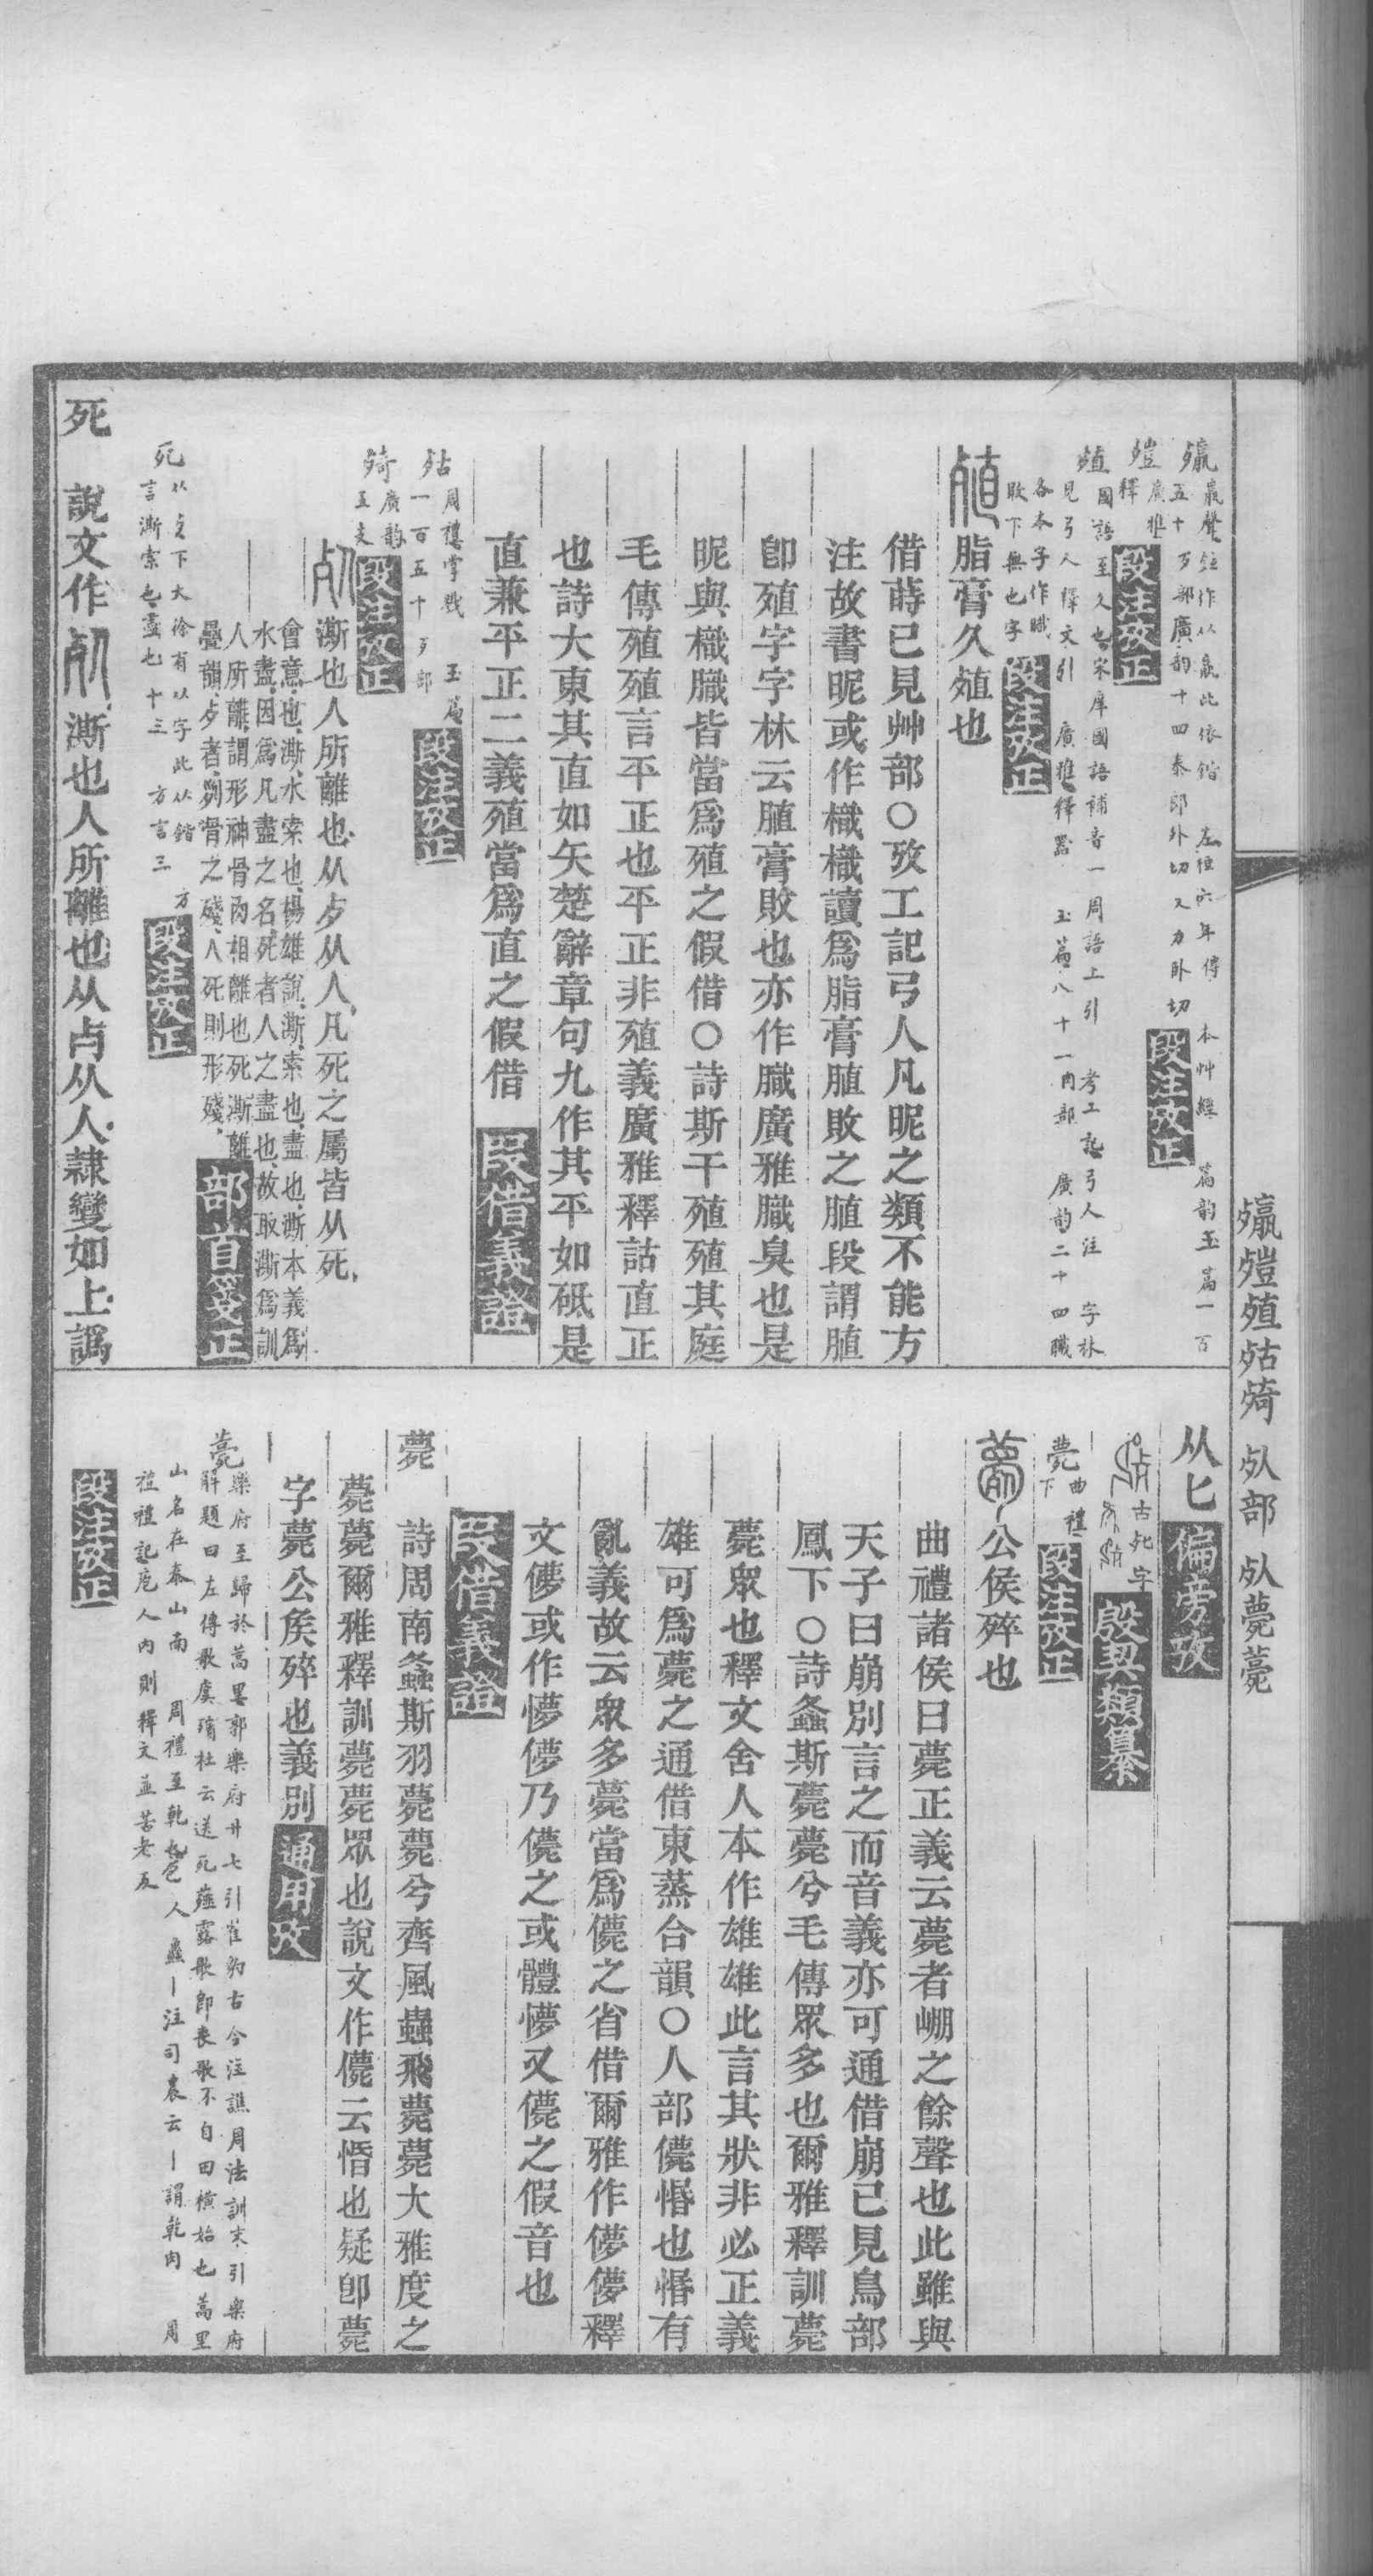 殨 羸聲 殨作从羸此依鍇 左桓六年傳 本艸經 篇韵玉篇一百
五十歹部廣韵十四泰郎外切又力卧切 段注攷正
殪 廣雅
釋 段注攷正
殖 國語至久也宋庠國語補音一周語上引 考工記弓人注 字林
見弓人釋文引 廣雅釋器 玉篇八十一肉部 廣韵二十四職
各本字作膱
敗下無也字 段注攷正
殖 脂膏久殖也
借蒔已見艸部○攷工記弓人凡昵之類不能方
注故書昵或作樴樴讀爲脂膏䐈敗之䐈段謂䐈
卽殖字字林云䐈膏敗也亦作膱廣雅膱臭也是
昵與樴膱皆當爲殖之假借○詩斯干殖殖其庭
毛傳殖殖言平正也平正非殖義廣雅釋詁直正
也詩大東其直如矢楚辭章句九作其平如砥是
直兼平正二義殖當爲直之假借 段借義證
殆 周禮掌戮 玉篇
一百五十歹部 段注攷正
㱦 廣韵
五支 段注攷正
死 澌也人所離也从歺从人凡死之屬皆从死
會意也澌水索也楊雄說澌索也盡也澌本義爲
水盡因爲凡盡之名死者人之盡也故取澌爲訓
人所離謂形神骨肉相離也死澌離
疊韻歺者𠛱骨之殘人死則形殘 部首箋正
死 从之下大徐有以字此从鍇 方
言澌索也盡也十三 方言三 段注攷正
死 說文作死澌也人所離也从歺从人隸變如上譌
从匕 偏旁攷
古死字 殷契類纂
薨 曲禮
下 段注攷正
薨 公侯殚也
曲禮諸侯曰薨正義云薨者崩之餘聲也此雖與
天子曰崩別言之而音義亦可通借崩已見鳥部
鳳下○詩螽斯薨薨兮毛傳眾多也爾雅釋訓薨
薨眾也釋文舍人本作雄雄此言其狀非必正義
雄可爲薨之通借東蒸合韻○人部儚惛也惛有
亂義故云眾多薨當爲儚之省借爾雅作儚儚釋
文儚或作懜儚乃儚之或體懜又儚之假音也
段借義證
薨 詩周南螽斯羽薨薨兮齊風蟲飛薨薨大雅度之
薨薨爾雅釋訓薨薨眾也說文作儚云惛也疑卽薨
字薨公矦殚也義別 通用攷
薧 樂府至歸於蒿里郭樂府廿七引崔豹古今注譙周法訓末引樂府
解題曰左傳歌虞殯杜云送死薤露歌卽喪歌不自田橫始也蒿里
山名在泰山南 周禮至乾也 人 注司裘云 謂乾肉 周
禮禮記庖人內則釋文並苦老反
段注攷正